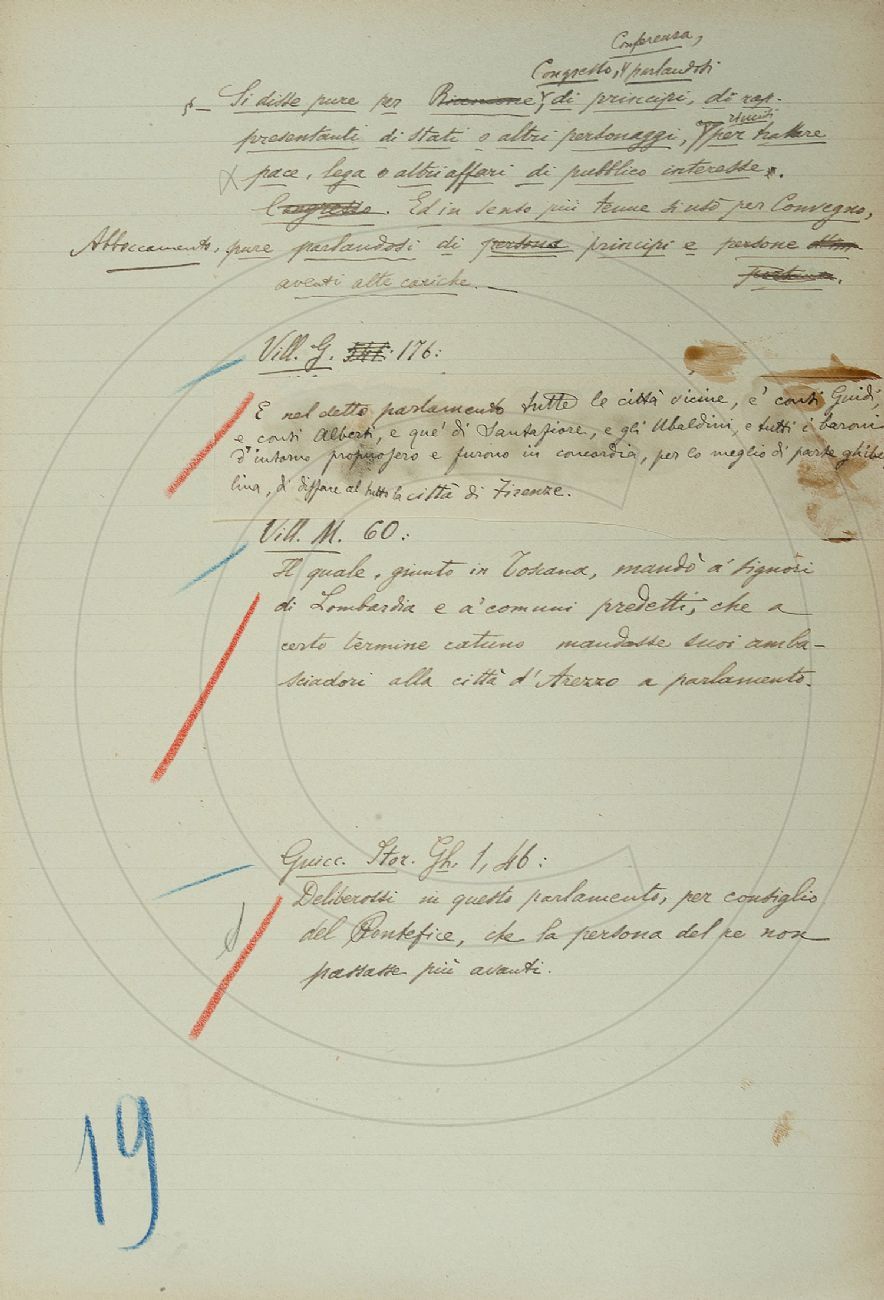 Conferenza,
Congresso, parlandosi
§ — Si disse pure per Riunione di principi, di rap-
riuniti
presentanti di stati o altri personaggi, per trattare
pace, lega o altri affari di pubblico interesse.
Congresso. Ed in senso più tenue si usò per Convegno,
Abboccamento, pure parlandosi di persona principi e persone
aventi alte cariche. —
Vill. G. 176:
E nel detto parlamento tutte le città vicine, e' conti Guidi,
e conti Alberti, e que' di Santafiore, e gli Ubaldini, e tutti i baroni
d'intorno propuosero e furono in concordia, per lo meglio di parte ghibel
lina, di disfare al tutto la città di Firenze.
Vill. M. 60:
Il quale, giunto in Toscana, mandò a' signori
di Lombardia e a' comuni predetti, che a
certo termine catuno mandasse suoi amba-
sciadori alla città d'Arezzo a parlamento.
Guicc. Stor. Gh. 1, 46:
Deliberossi in questo parlamento, per consiglio
del Pontefice, che la persona del re non
passasse più avanti.
19